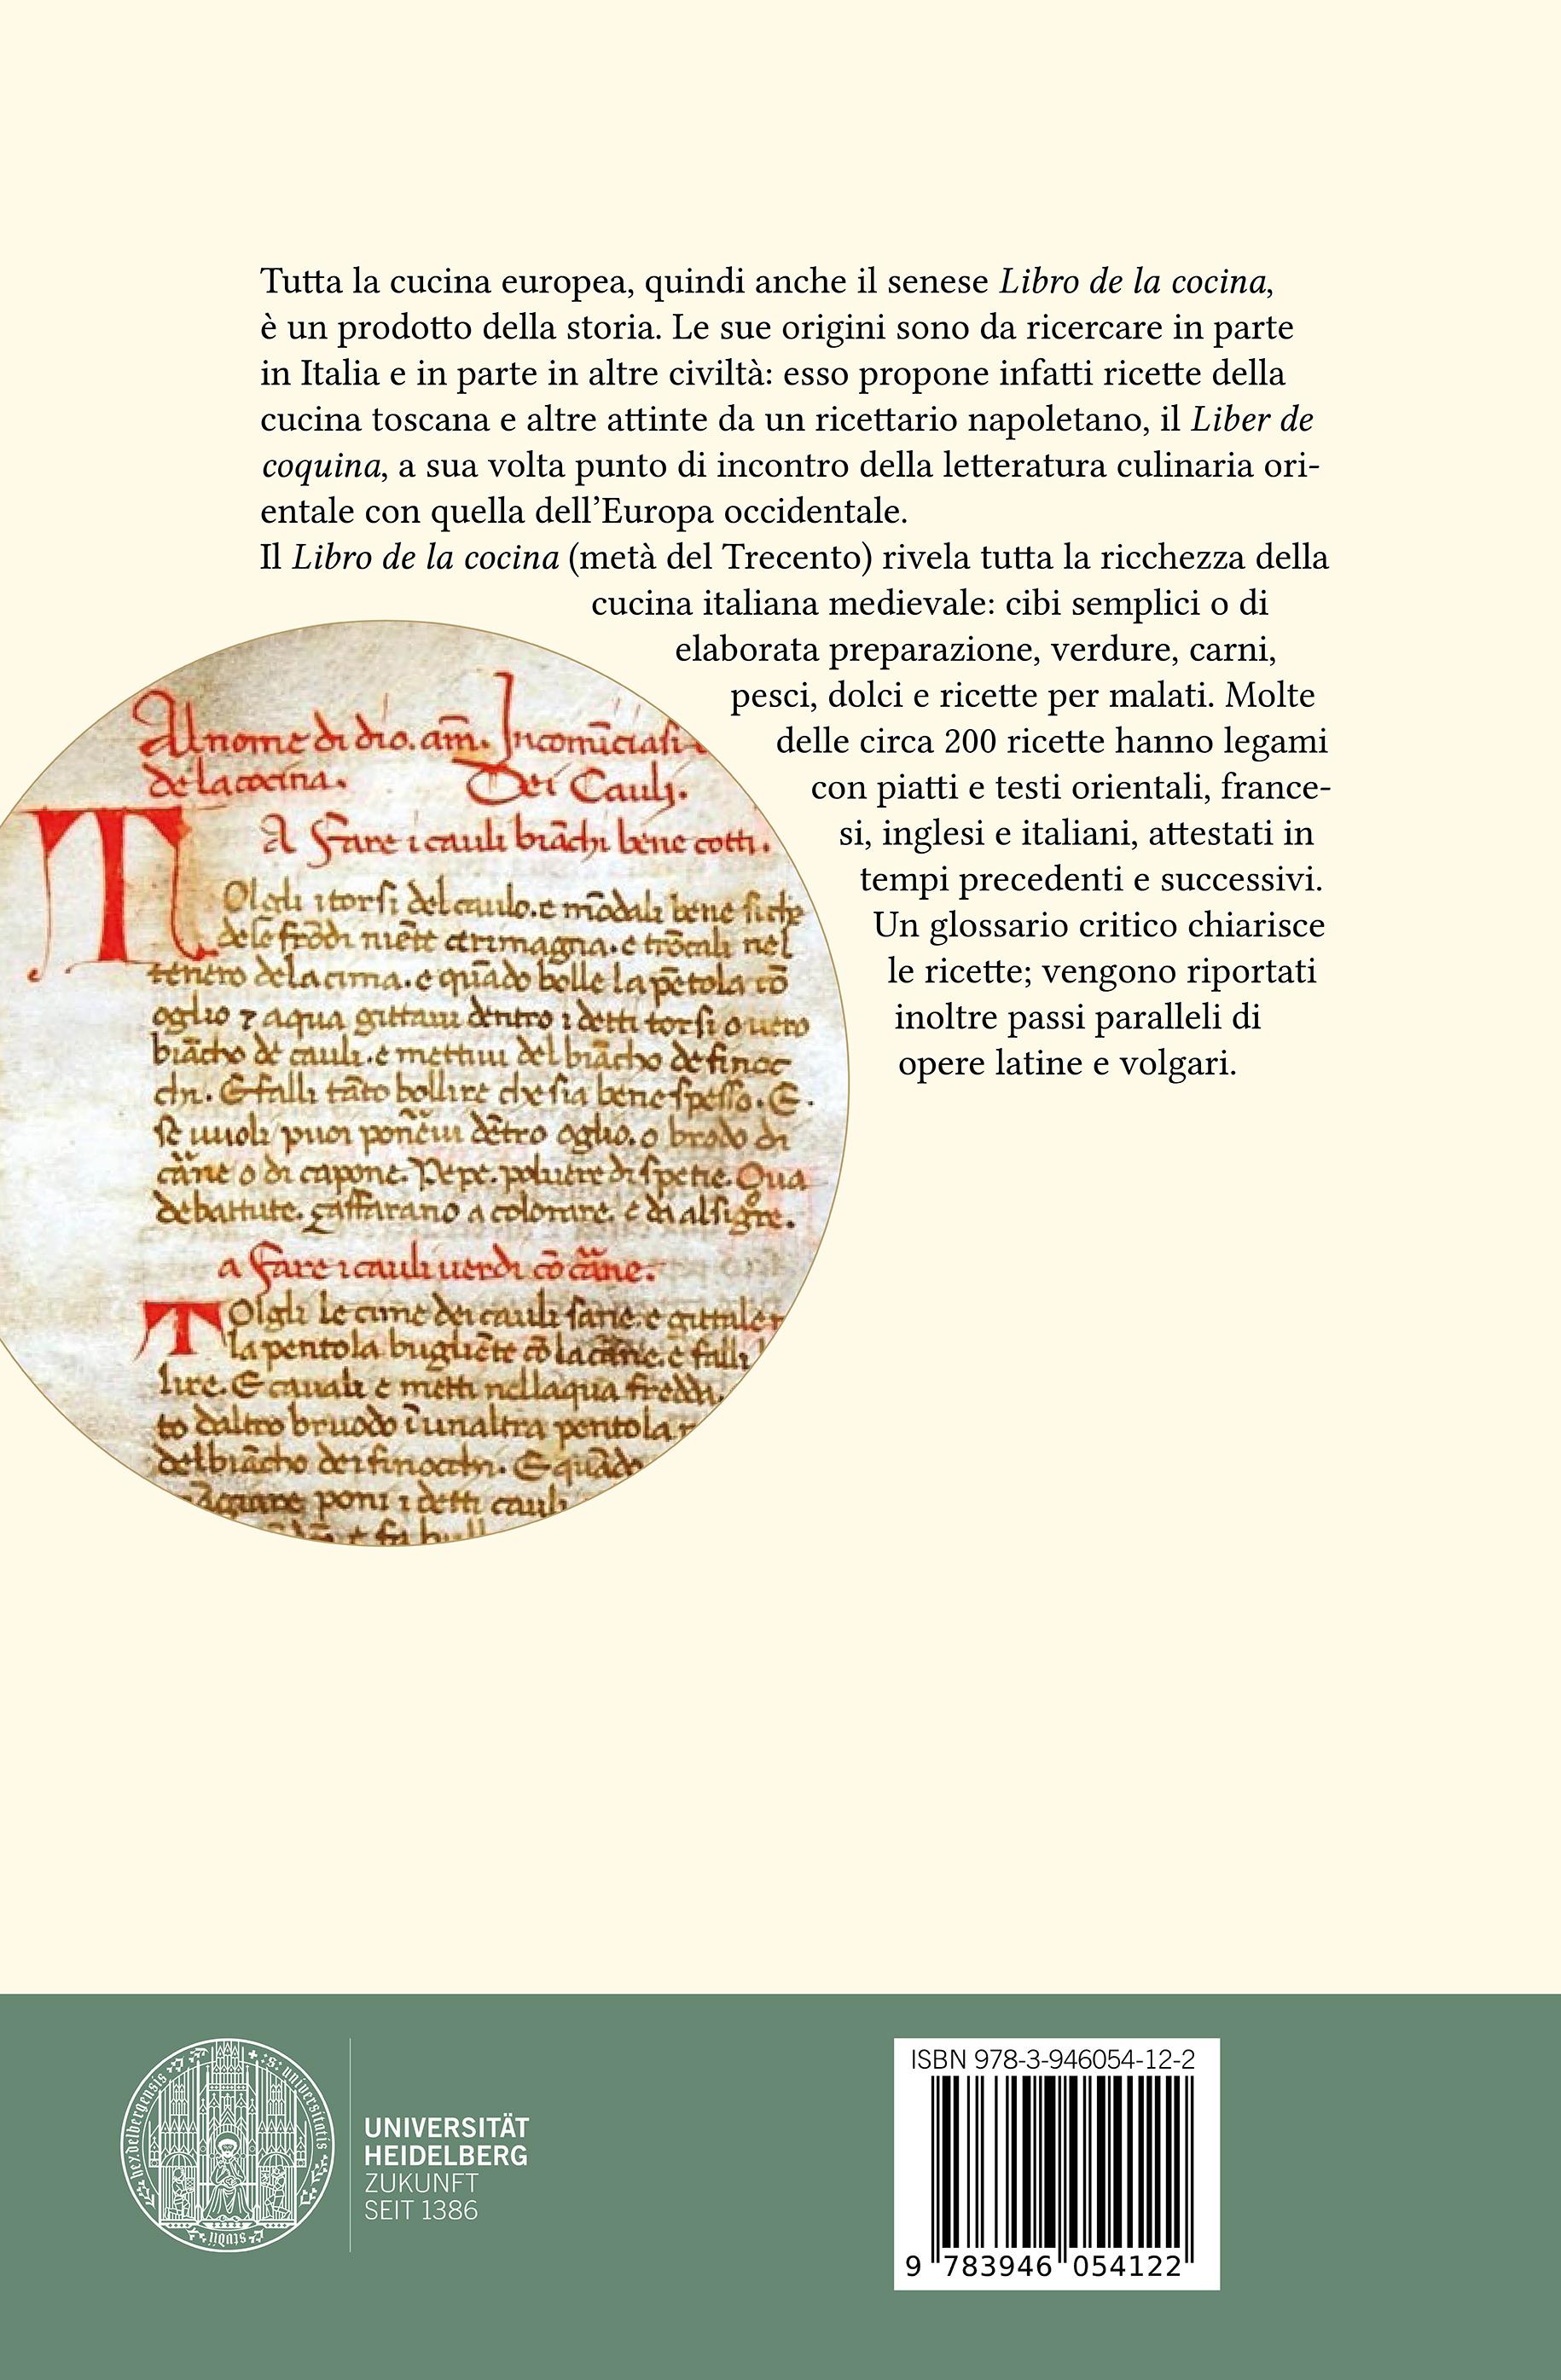 Tutta la cucina europea, quindi anche il senese Libro de la cocina,
è un prodotto della storia. Le sue origini sono da ricercare in parte
in Italia e in parte in altre civiltà: esso propone infatti ricette della
cucina toscana e altre attinte da un ricettario napoletano, il Liber de
coquina, a sua volta punto di incontro della letteratura culinaria ori-
entale con quella dell’Europa occidentale.
Il Libro de la cocina (metà del Trecento) rivela tutta la ricchezza della
cucina italiana medievale: cibi semplici o di
elaborata preparazione, verdure, carni,
pesci, dolci e ricette per malati. Molte
delle circa 200 ricette hanno legami
con piatti e testi orientali, france-
si, inglesi e italiani, attestati in
tempi precedenti e successivi.
Un glossario critico chiarisce
le ricette; vengono riportati
inoltre passi paralleli di
opere latine e volgari.
Al nome di dio. am̄. Incomīciasi
de la cocina. Dei Cauli.
A fare i cauli biāchi bene cotti.
Tolgli i torsi del caulo. e mōdali bene si che
de le frōdi niēte ci rimagna. e trōcali nel
tenero de la cima. e quādo bolle la pētola cō
oglio ⁊ aqua gittaui dentro i detti torsi o uero
biācho de cauli. e mettiui del biācho de finoc
chi. E falli tāto bollire che sia bene spesso. E
se uuoli puoi ponerui dētro oglio. o brodo di
carne o di capone. Pepe. poluere di spetie. Oua
debattute. çaffarano a colorare. e da al sigre.
a fare i cauli uerdi cō carne.
Tolgli le cime dei cauli sane. e gittale
la pentola bugliēte cō la carne. e falli
lire. E cauali e metti nell aqua fredda.
to daltro bruodo ī unaltra pentola
del biācho dei finocchi. E quādo
poni i detti cauli
s: universitatis
studii
heydelbergensis
UNIVERSITÄT
HEIDELBERG
ZUKUNFT
SEIT 1386
ISBN 978-3-946054-12-2
9 783946 054122